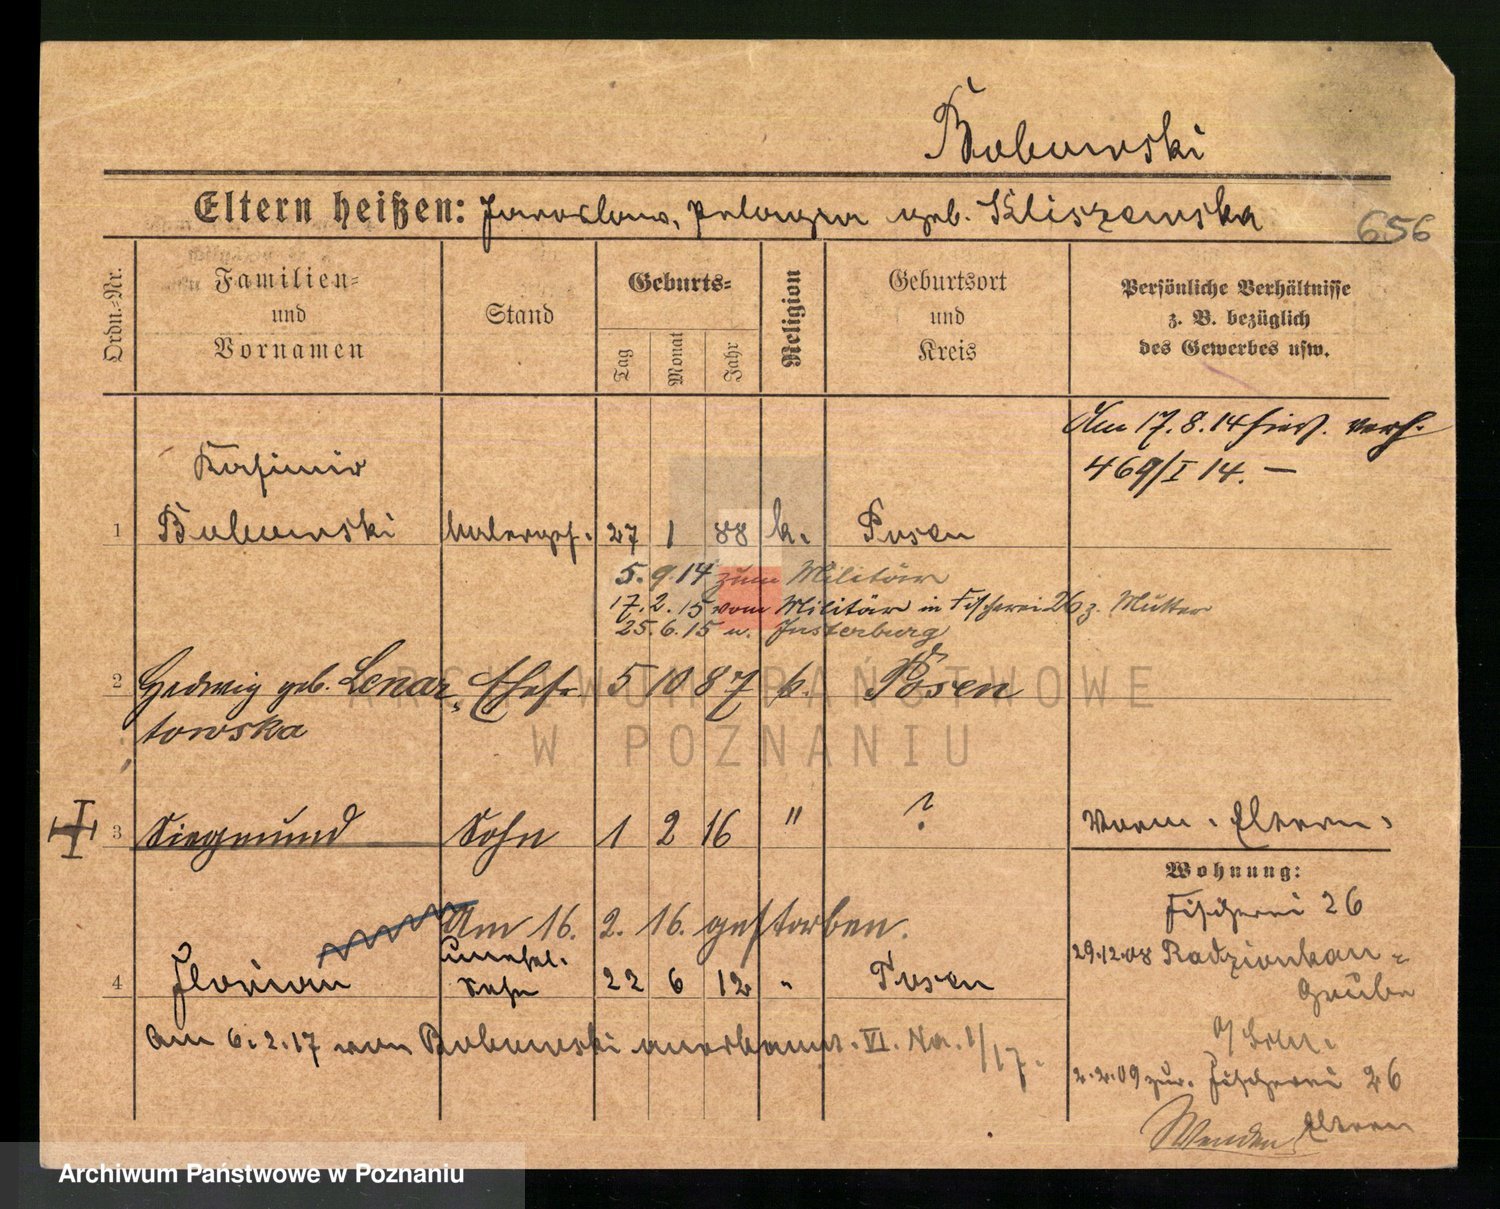 Bobowski
Eltern heißen: Jaroslaw, Pelagia geb. Kliszewska
656
Ordn.=Nr.
Familien=
und
Vornamen
Stand
Geburts=
Tag
Monat
Jahr
Religion
Geburtsort
und
Kreis
Persönliche Verhältnisse
z. B. bezüglich
des Gewerbes usw.
Am 17. 8. 14 hies. verh.
469/I 14. —
Kasimir
1 Bobowski Malergeh. 27 1 88 k. Posen
5. 9. 14 zum Militär
17. 2. 15 vom Militär in Fischerei 26 z. Mutter
25. 6. 15 n. Insterburg
2 Hedwig geb. Lenar= Ehefr 5 10 87 k. Posen
towska
3 Siegmund Sohn 1 2 16 " ?
Vorm. Eltern
Wohnung:
Am 16. 2. 16. gestorben.
Fischerei 26
29.12.08 Radzionkau=
Grube
4 Florian Sohn 22 6 12 " Posen
am 6. 2. 17 von Bobowski anerkannt. VI. No. 1/17.
2.2.09 zur. Fischerei 26
Eltern
Wenden
ARCHIWUM PAŃSTWOWE
W POZNANIU
Archiwum Państwowe w Poznaniu